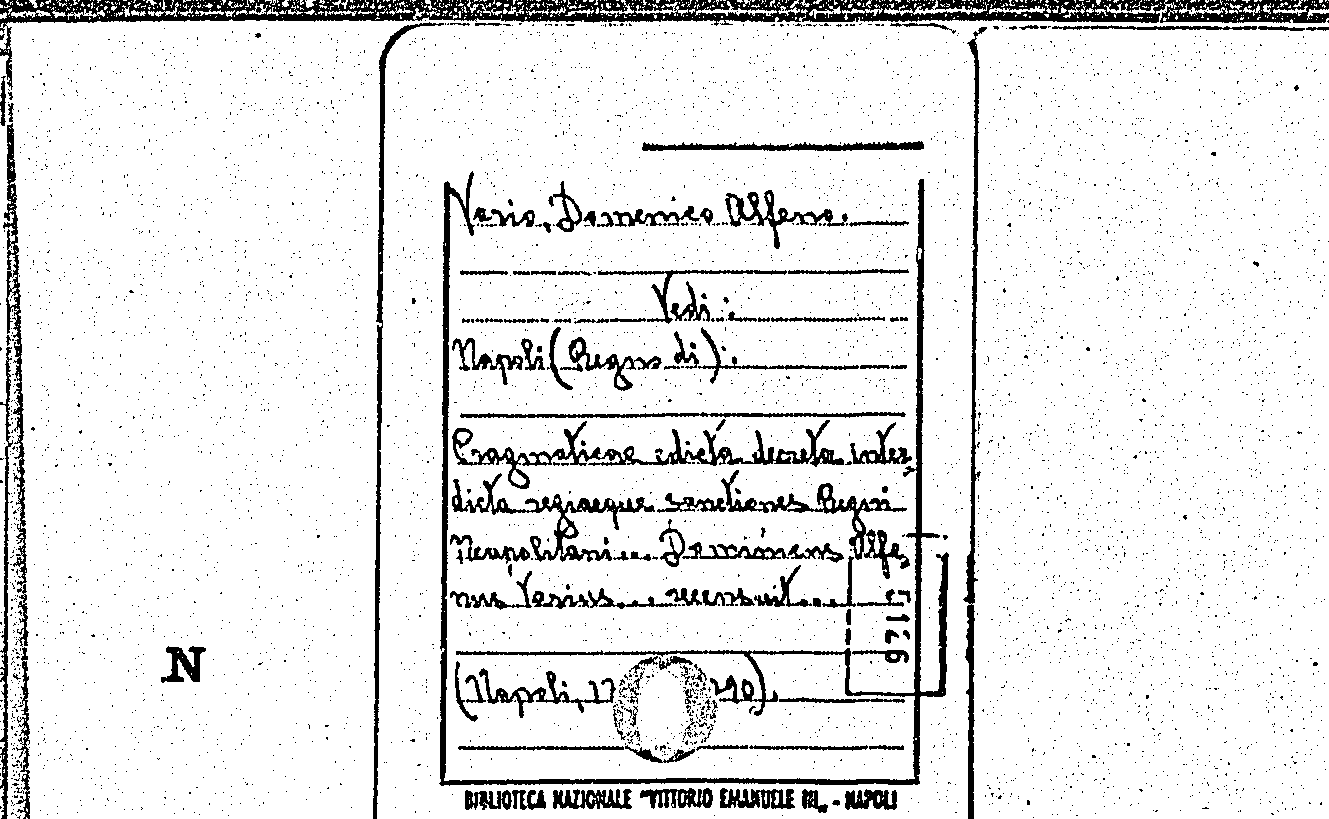 Vario, Domenico Alfeno.
Vedi:
Napoli (Regno di).
Pragmaticae edicta decreta inter,
dicta regiaeque sanctiones Regni
Neapolitani... Dominicus Alfe,
nus Varius... recensuit...
(Napoli, 17 90).
5126
N
BIBLIOTECA NAZIONALE "VITTORIO EMANUELE III„ - NAPOLI